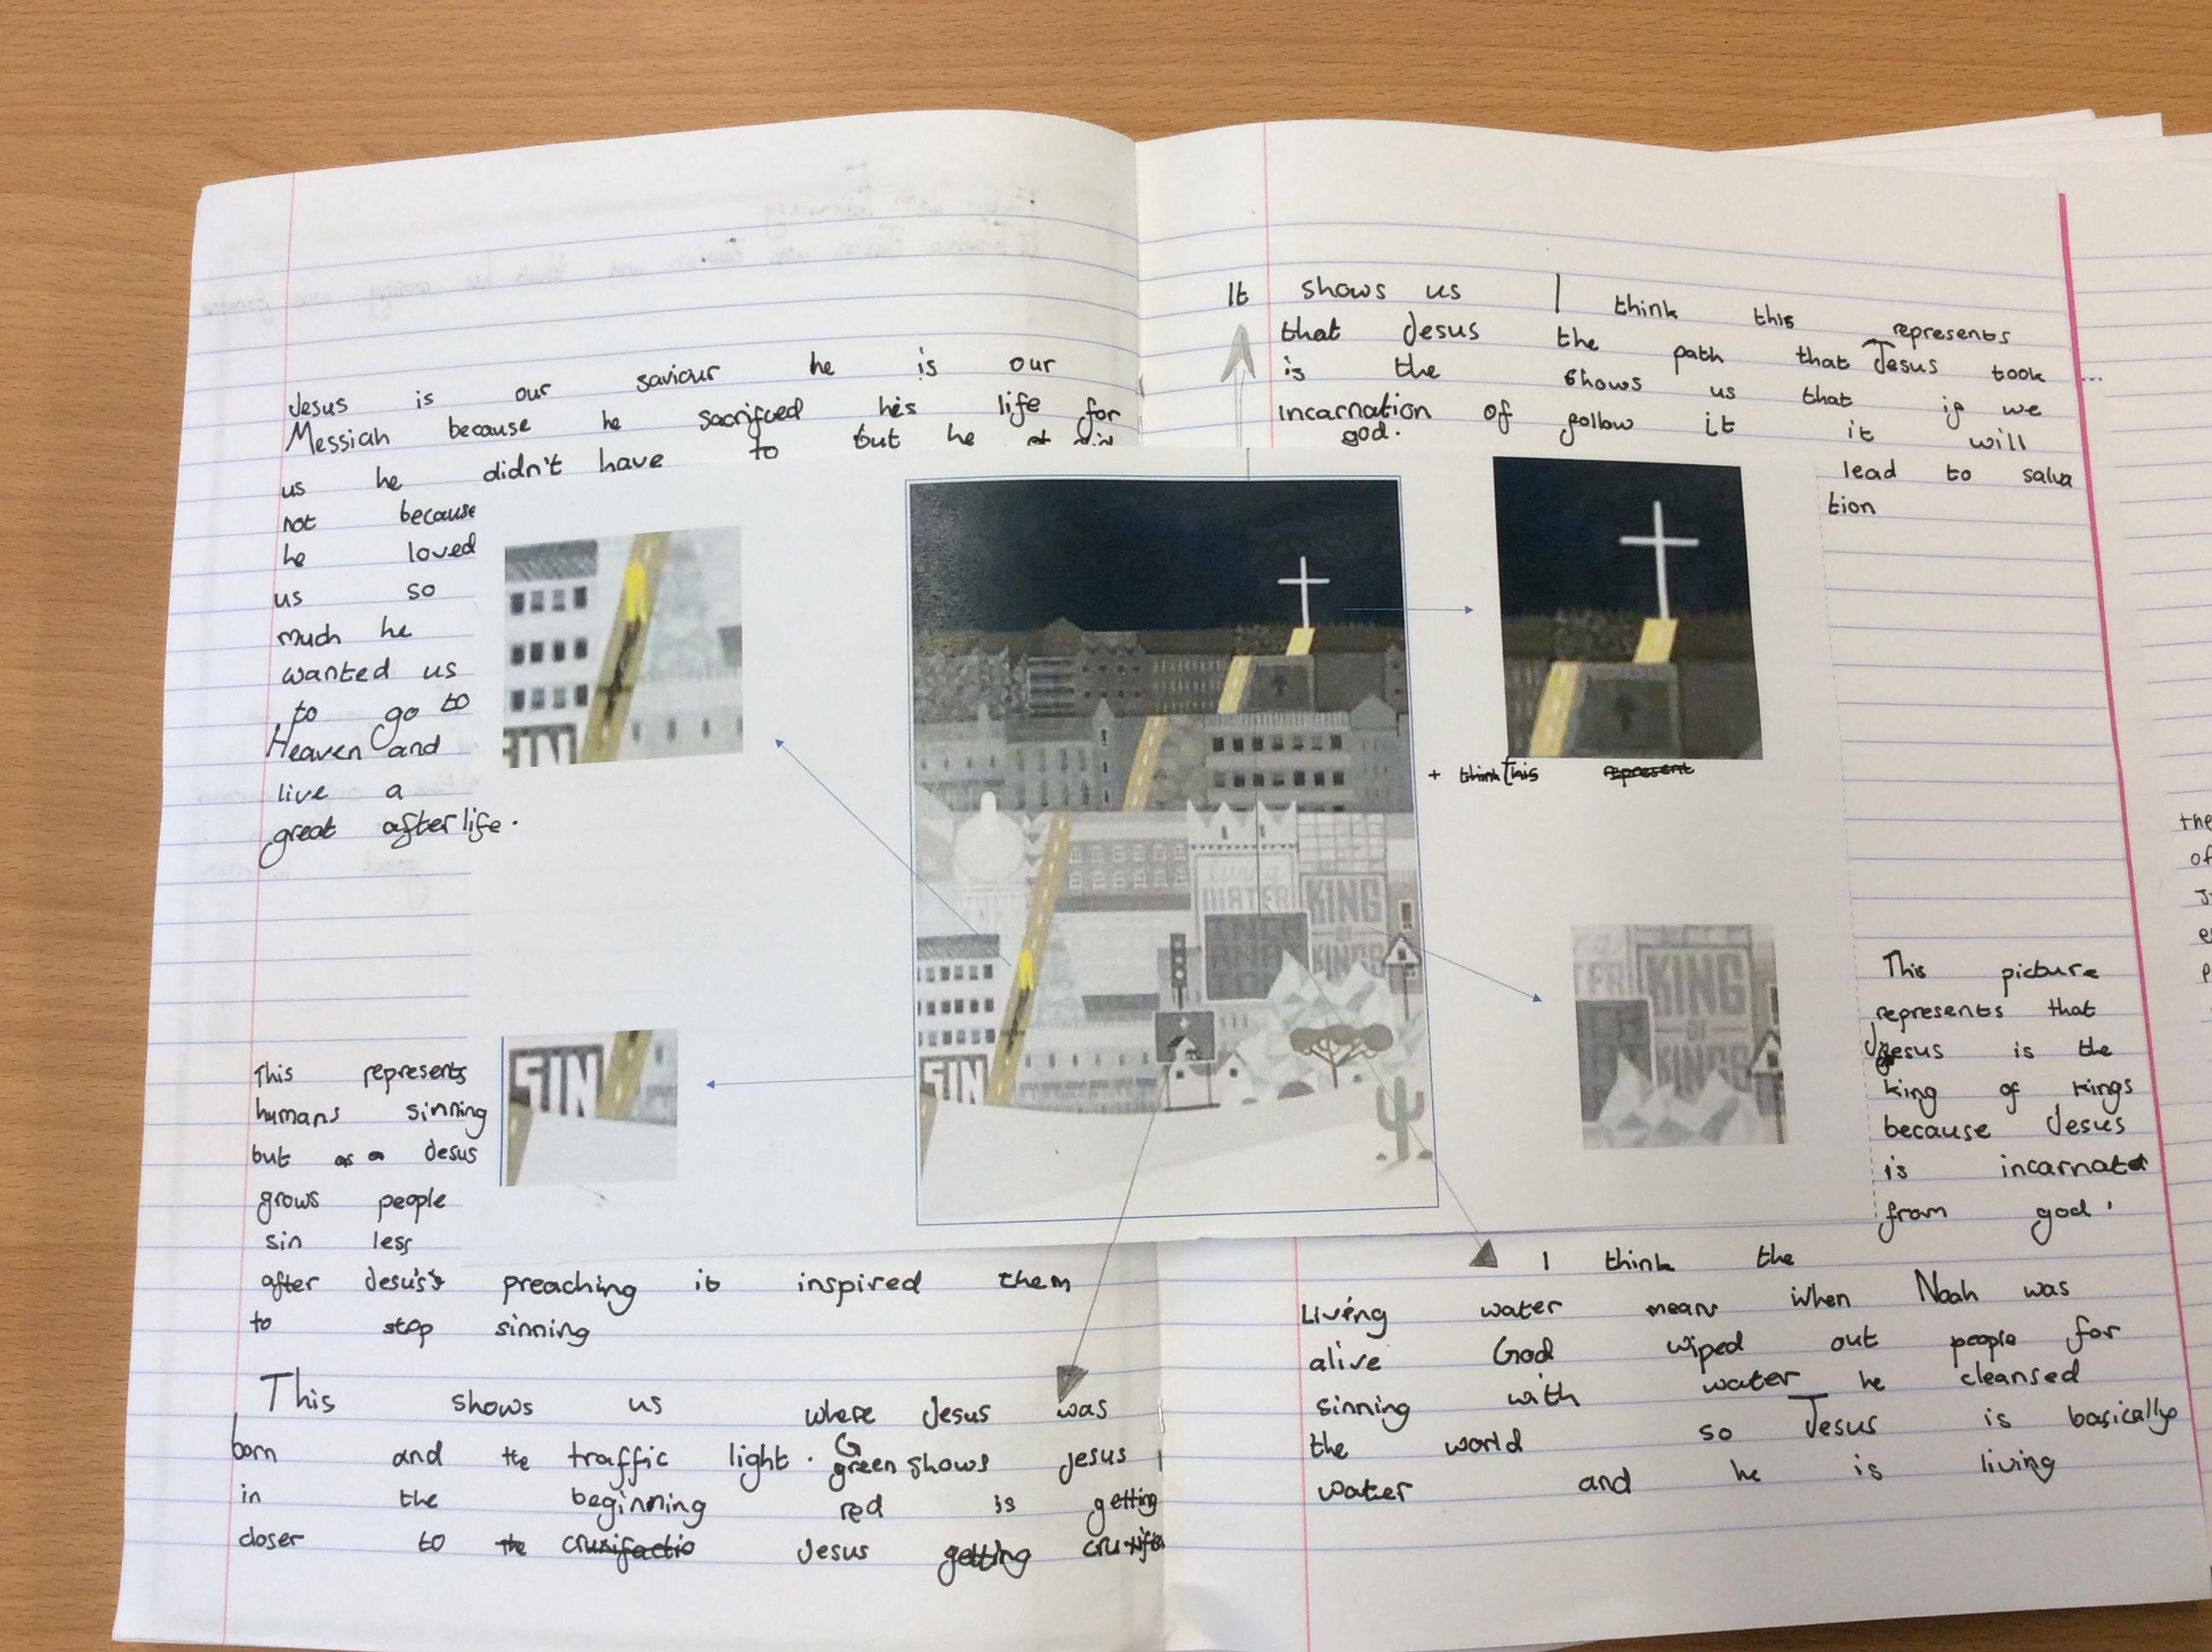 Jesus is our saviour he is our
Messiah because he sacrificed his life for
us he didn't have to but he
not because
he loved
us so
much he
wanted us
to go to
Heaven and
live a
great afterlife.
This represents
humans sinning
but Jesus
grows people
sin less
after Jesus's preaching it inspired them
to stop sinning
This shows us where Jesus was
born and the traffic light. Green shows Jesus
in the beginning red is getting
closer to the cruxifactio Jesus getting
It shows us
that Jesus
is the
incarnation of
god.
I think this represents
the path that Jesus took
shows us that if we
follow it it will
lead to salva
tion
+ think This represent
SIN
living
WATER
KING
OF
KINGS
INCA
RNAT
ION
SIN
SIN
KING
OF
KINGS
This picture
represents that
Jesus is the
king of kings
because Jesus
is incarnated
from god.
I think the
Living water means when Noah was
alive God wiped out people for
sinning with water he cleansed
the world so Jesus is basically
water and he is living
the
of